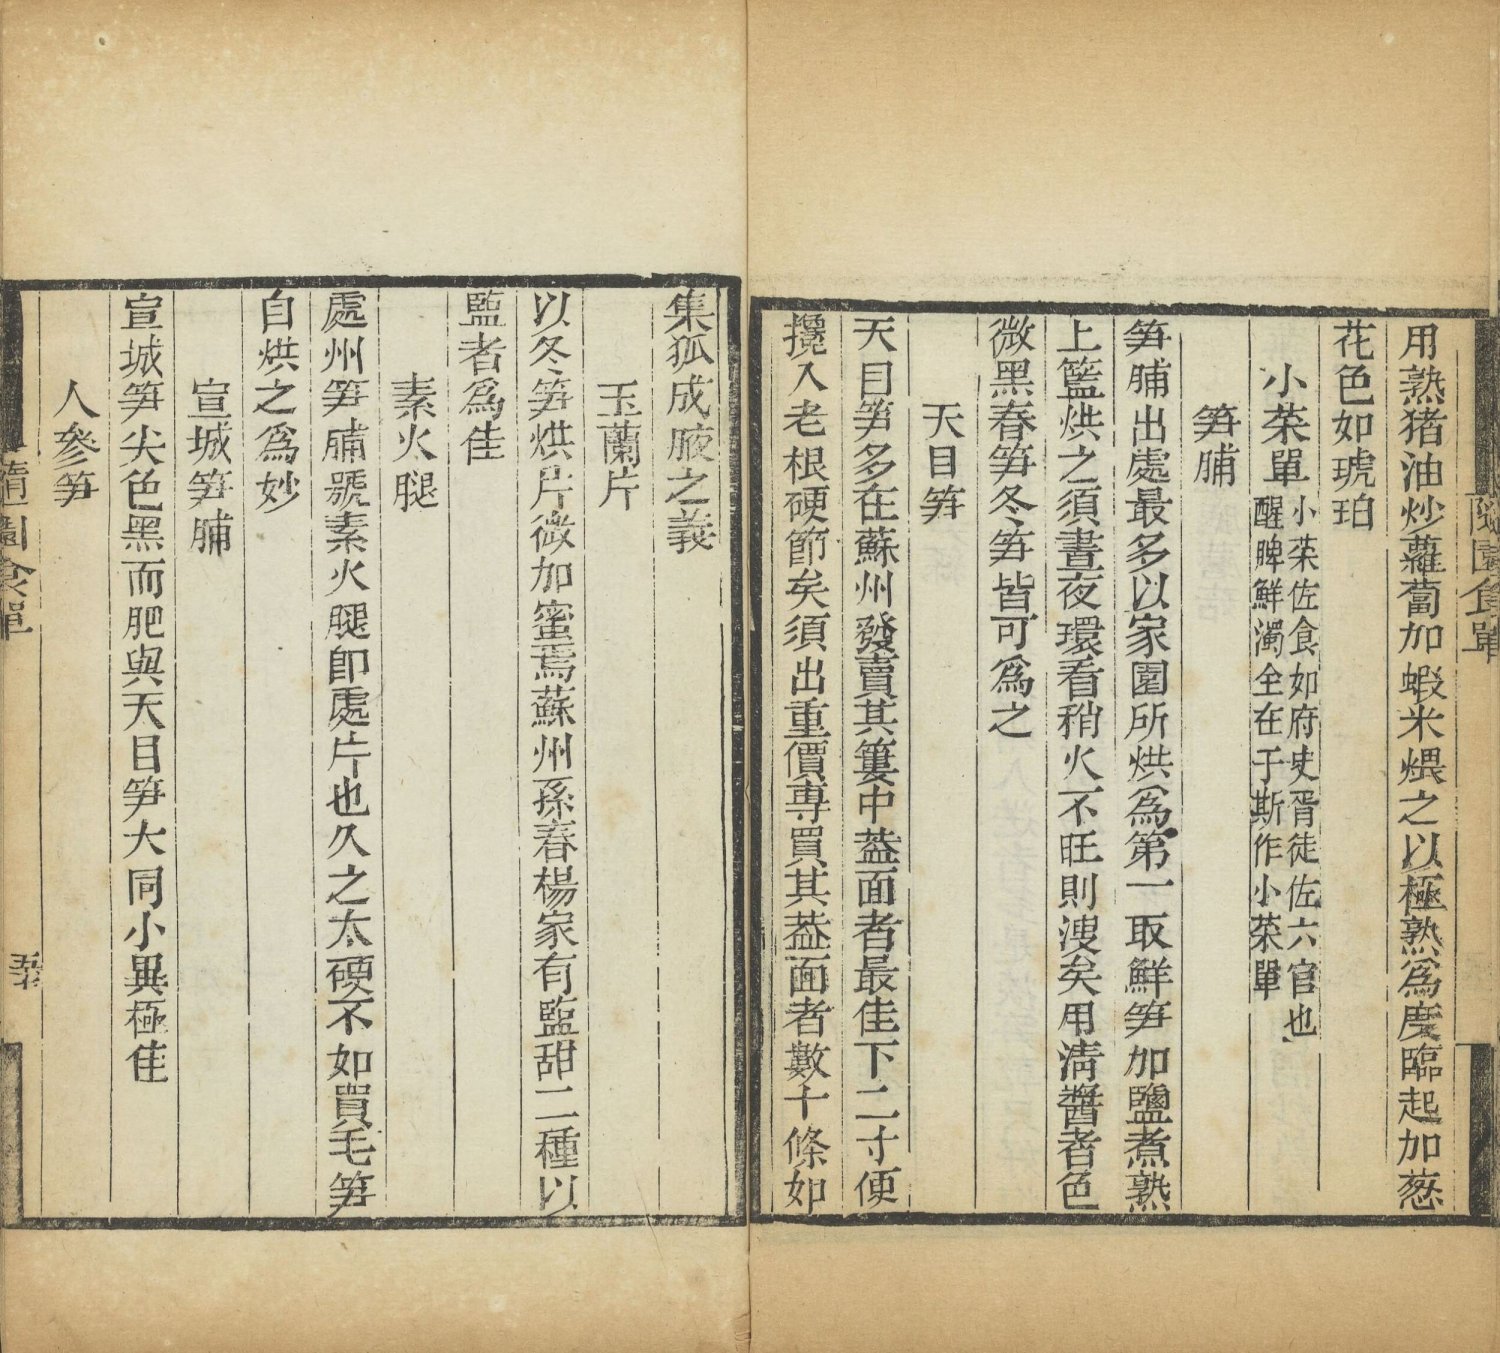 隨園食單
用熟猪油炒蘿蔔加蝦米煨之以極熟爲度臨起加葱
花色如琥珀
小菜單
小菜佐食如府史胥徒佐六官也
醒脾鮮濁全在于斯作小菜單
笋脯
笋脯出處最多以家園所烘爲第一取鮮笋加鹽煮熟
上籃烘之須晝夜環看稍火不旺則溲矣用淸醬者色
微黑春笋冬笋皆可爲之
天目笋
天目笋多在蘇州發賣其簍中葢面者最佳下二寸便
攙入老根硬節矣須出重價專買其葢面者數十條如
集狐成腋之義
玉蘭片
以冬笋烘片微加蜜焉蘇州孫春楊家有監甜二種以
監者爲佳
素火腿
處州笋脯號素火腿卽處片也久之太硬不如買毛笋
自烘之爲妙
宣城笋脯
宣城笋尖色黑而肥與天目笋大同小異極佳
人參笋
隨園食單